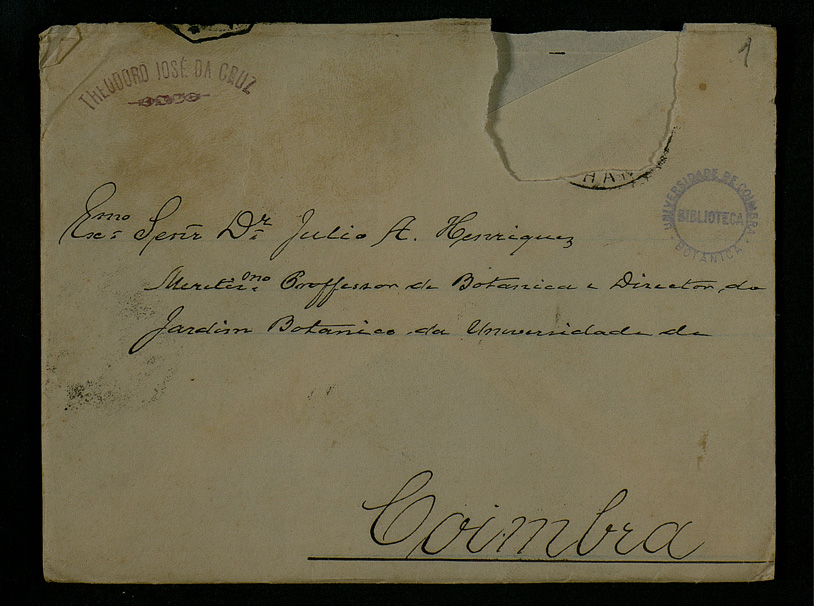 THEODORO JOSÉ DA CRUZ
1
HA
UNIVERSIDADE DE COIMBRA
BIBLIOTECA
BOTANICA
Exmo Senr Dr Julio A. Henriques
Meretissmo Proffessor de Botanica e Director do
Jardim Botanico da Universidade de
Coimbra